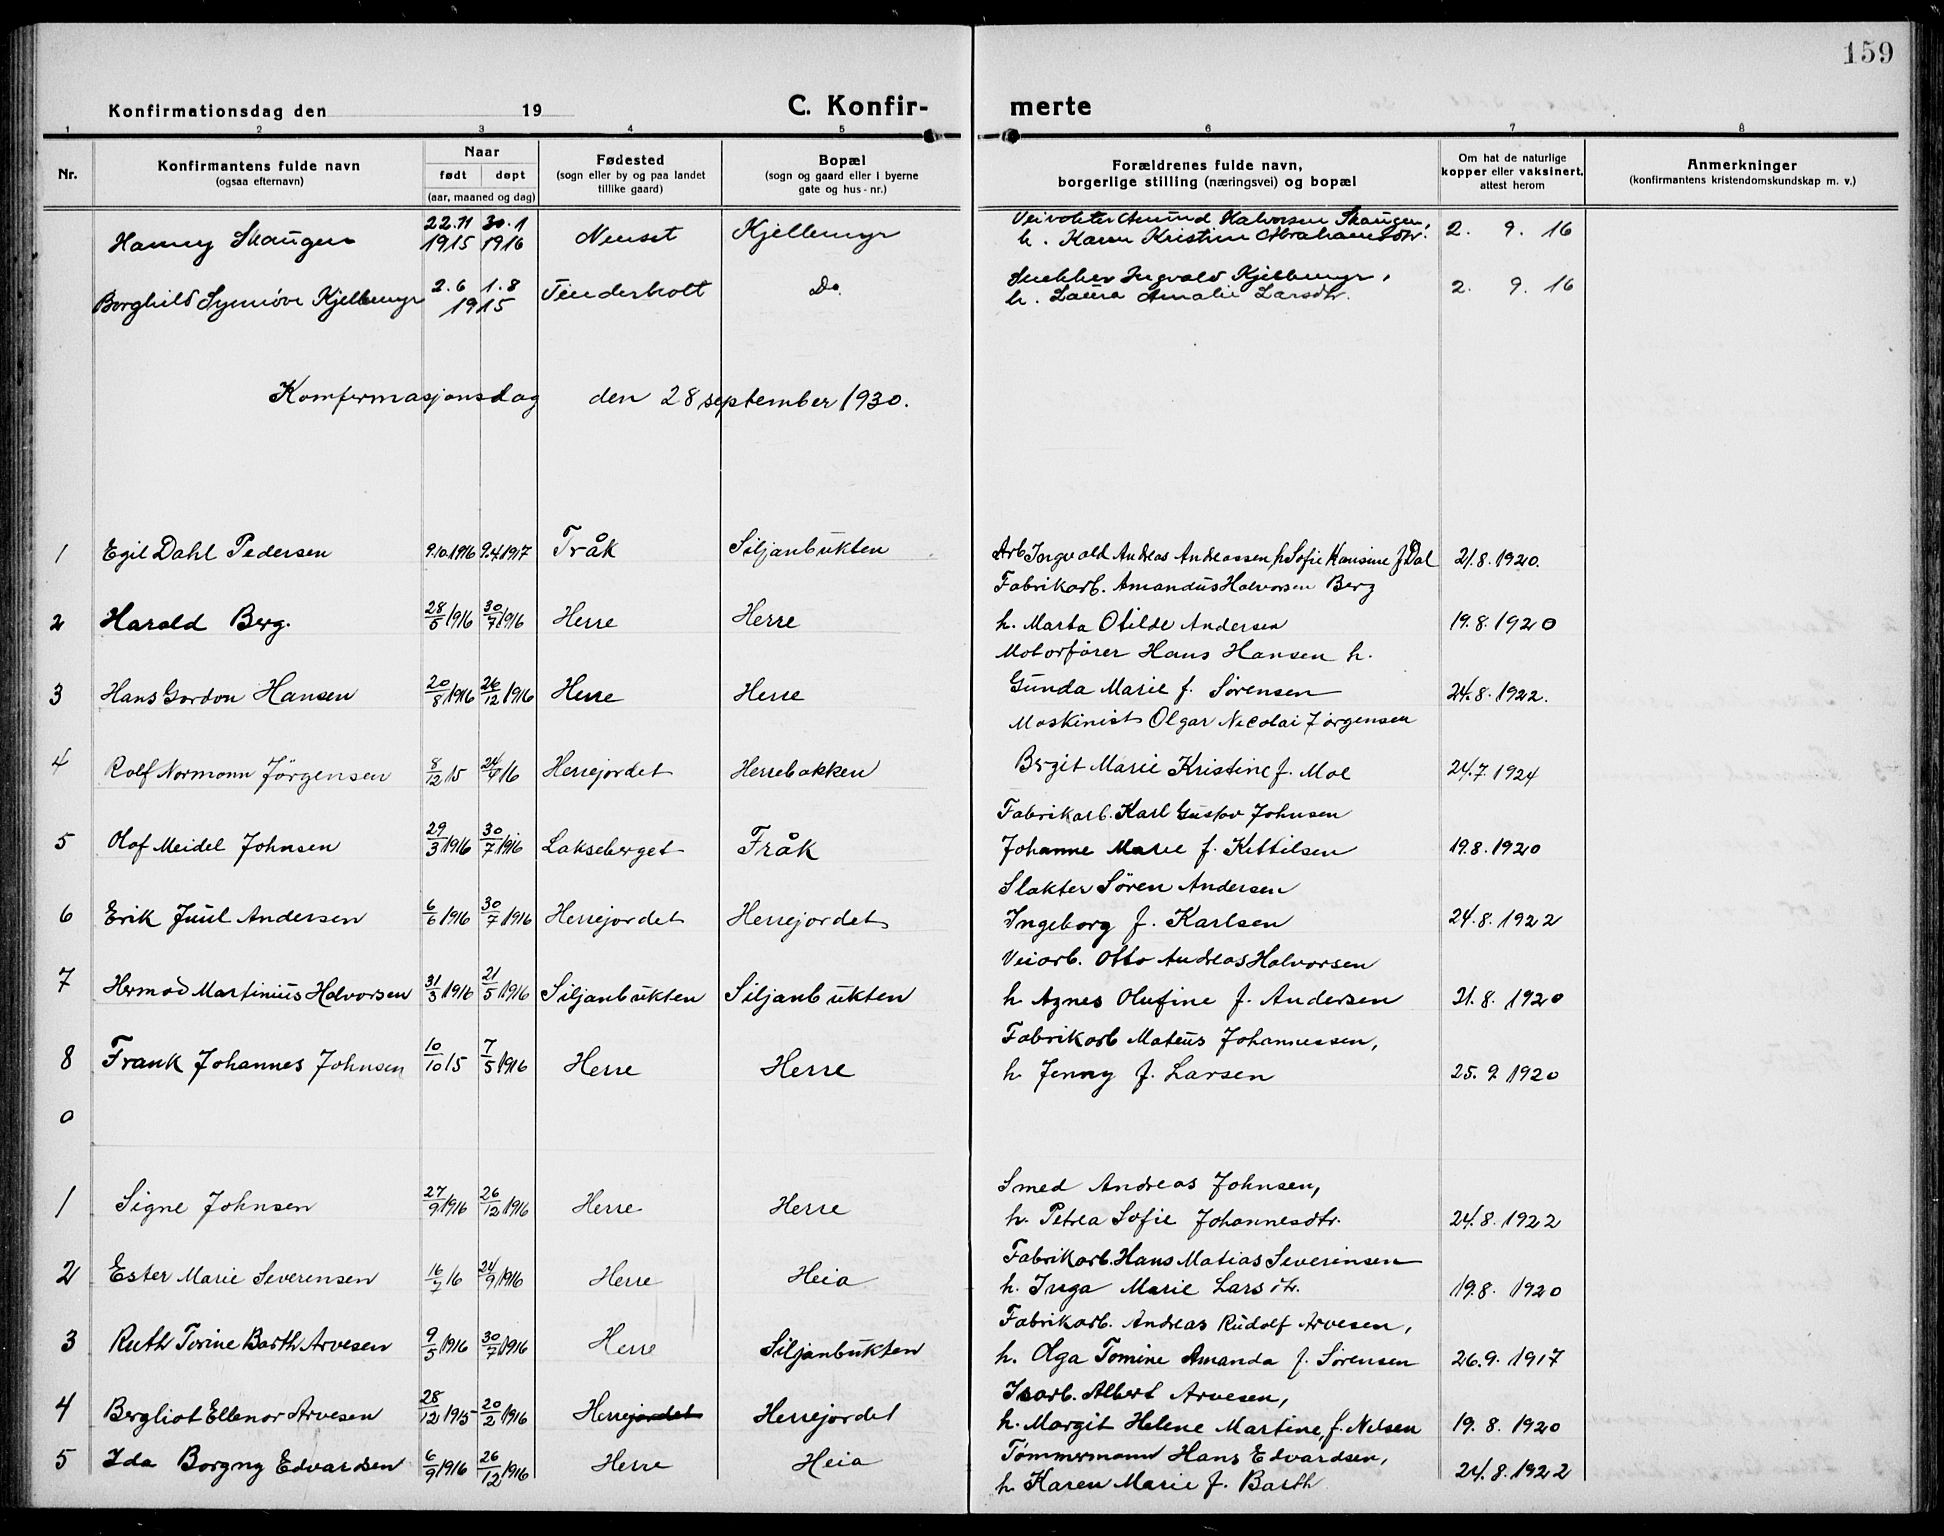 159
Konfirmationsdag den 19
C. Konfir-
merte
1 2 3 4 5 6 7 8
Nr.
Konfirmantens fulde navn
(ogsaa efternavn)
Naar
født døpt
(aar, maaned og dag)
Fødested
(sogn eller by og paa landet
tillike gaard)
Bopæl
(sogn og gaard eller i byerne
gate og hus-nr.)
Forældrenes fulde navn,
borgerlige stilling (næringsvei) og bopæl
Om hat de naturlige
kopper eller vaksinert,
attest herom
Anmerkninger
(konfirmantens kristendomskundskap m. v.)
Veivokter Amund Halvorsen Skaugen,
Hanny Skaugen 22.11 1915 30.1 1916 Nenset Kjellemyr h. Karen Kristine Abrahamsdtr. 2. 9. 16
Snekker Ingvald Kjellemyr,
Borghild Synnöve Kjellemyr 2.6 1.8 1915 Tinderholt Do. h. Laura Amalie Larsdtr. 2. 9. 16
Komfermasjonsdag den 28 september 1930.
1 Egil Dahl Pedersen 9.10.1916 9.4.1917 Tråk Siljanbukten Arb Ingvald Andreas Andreassen h Sofie Hansine f Dal 21.8.1920.
Fabrikarb. Amandus Halvorsen Berg
2 Harald Berg. 28/5 1916 30/7 1916 Herre Herre h. Marta Otilde Andersen 19.8.1920
Motorfører Hans Hansen h.
3 Hans Gordon Hansen 20/8 1916 26/12 1916 Herre Herre Gunda Marie f. Sørensen 24.8.1922.
Maskinist Olgar Nicolai Jørgensen
4 Rolf Normann Jörgensen 8/12 15 24/4 16 Herrejordet Herrebakken Birgit Marie Kristine f. Moe 24.7.1924
Fabrikarb. Karl Gustav Johnsen
5 Olaf Meidel Johnsen 29/3 1916 30/7 1916 Lakseberget Tråk Johanne Marie f. Kittilsen 19.8.1920
Slakter Sören Andersen
6 Erik Juul Andersen 6/6 1916 30/7 1916 Herrejordet Herrejordet Ingeborg f. Karlsen 24.8.1922
Veiarb. Otto Andreas Halvorsen
7 Hermod Martinius Halvorsen 31/3 1916 21/5 1916 Siljanbukten Siljanbukten h Agnes Olufine f. Andersen 21.8.1920
Fabrikarb Mateus Johannessen,
8 Frank Johannes Johnsen 10/10 15 7/5 1916 Herre Herre h. Jenny f. Larsen 25.9 1920
0
Smed Andreas Johnsen,
1 Signe Johnsen 27/9 1916 26/12 1916 Herre Herre h. Petrea Sofie Johannesdtr. 24.8.1922
Fabrikarb. Hans Matias Severinsen
2 Ester Marie Severensen 16/7 16 24/9 1916 Herre Heia h. Inga Marie Larsdtr. 19.8. 1920
Fabrikarb. Andreas Rudolf Arvesen,
3 Ruth Torine Barth Arvesen 9/5 1916 30/7 1916 Herre Siljanbukten h. Olga Tomine Amanda f. Sørensen 26.9. 1917
Isarb. Albert Arvesen,
4 Bergliot Ellenor Arvesen 28/12 1915 20/2 1916 Herrejordet Herrejordet h. Margit Helene Martine, f. Nilsen 19. 8. 1920
Tömmermann Hans Edvardsen,
5 Ida Borgny Edvardsen 6/9 1916 26/12 1916 Herre Heia h. Karen Marie f. Barth 24.8.1922